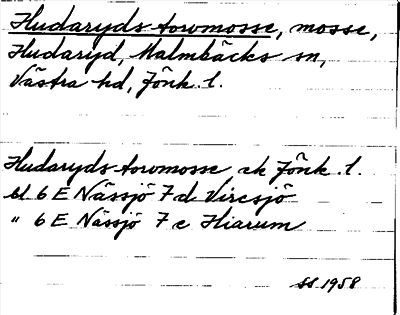 Hudaryds-torvmosse, mosse,
Hudaryd, Malmbäcks sn,
Västra hd, Jönk. l.
Hudaryds-torvmosse ek Jönk. l.
bl 6 E Nässjö 7 d Viresjö
" 6 E Nässjö 7 e Hiarum
SS 1958